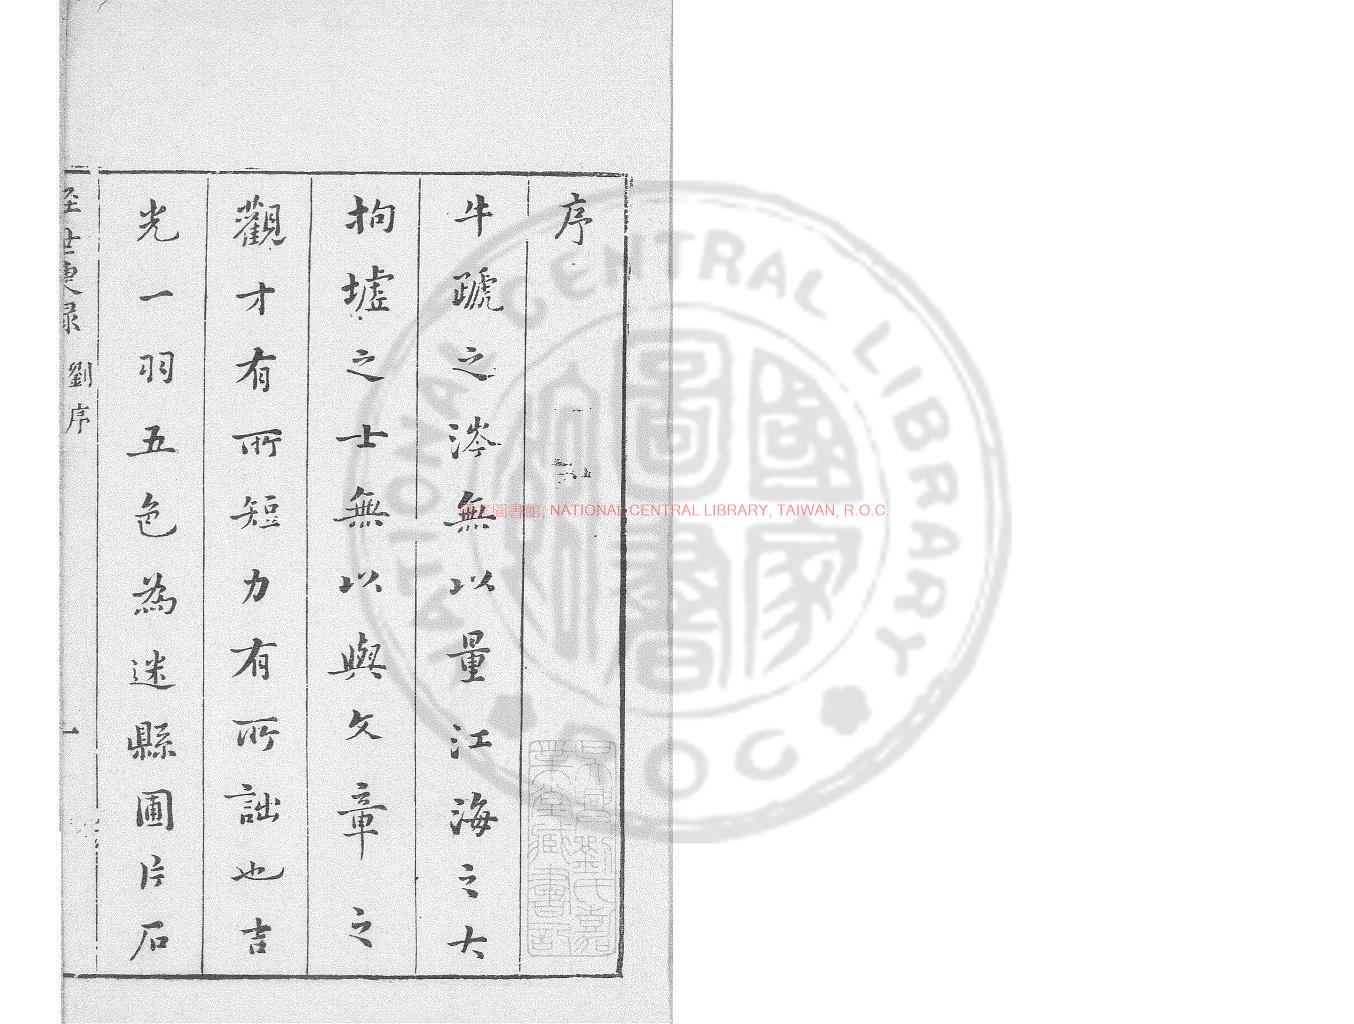 序
牛蹏之涔無以量江海之大
拘墟之士無以與文章之
觀才有所短力有所詘也吉
光一羽五色為迷縣圃片石
經世奧錄 劉序 一
吳興劉氏嘉
業堂藏書記
國家圖書館, NATIONAL CENTRAL LIBRARY, TAIWAN, R.O.C.
NATIONAL CENTRAL LIBRARY
ROC
國家圖書館